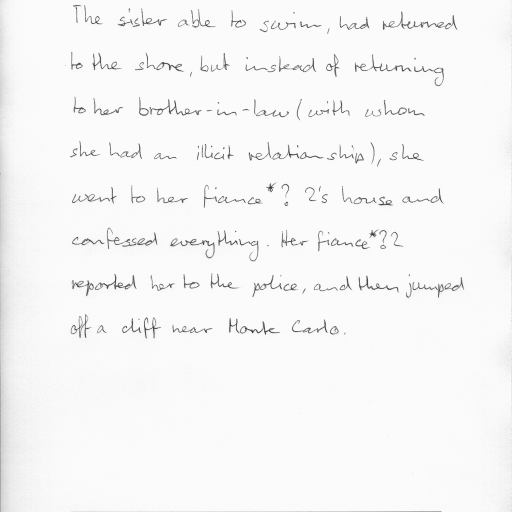 The sister able to swim, had returned
to the shore, but instead of returning
to her brother-in-law (with whom
she had an illicit relationship), she
went to her fiance*? 2's house and
confessed everything. Her fiance*?2
reported her to the police, and then jumped
off a cliff near Monte Carlo.